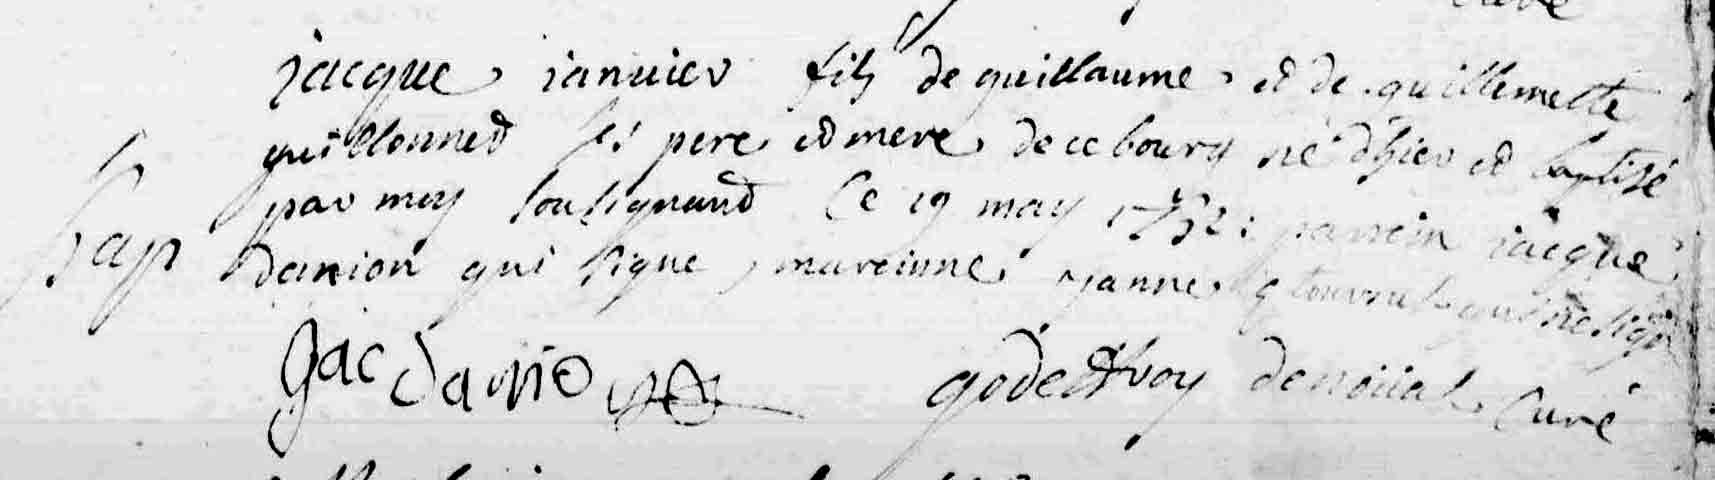 jacque janvier fils de guillaume et de guillemette
guillonnet ses pere et mere de ce bourg né d'hier et baptisé
par moy sousignand Ce 19 may 1732: parrein jacque
Bap danion qui signe, mareinne janne qui ne signe
Jac danion
godeffroy denoüal Curé